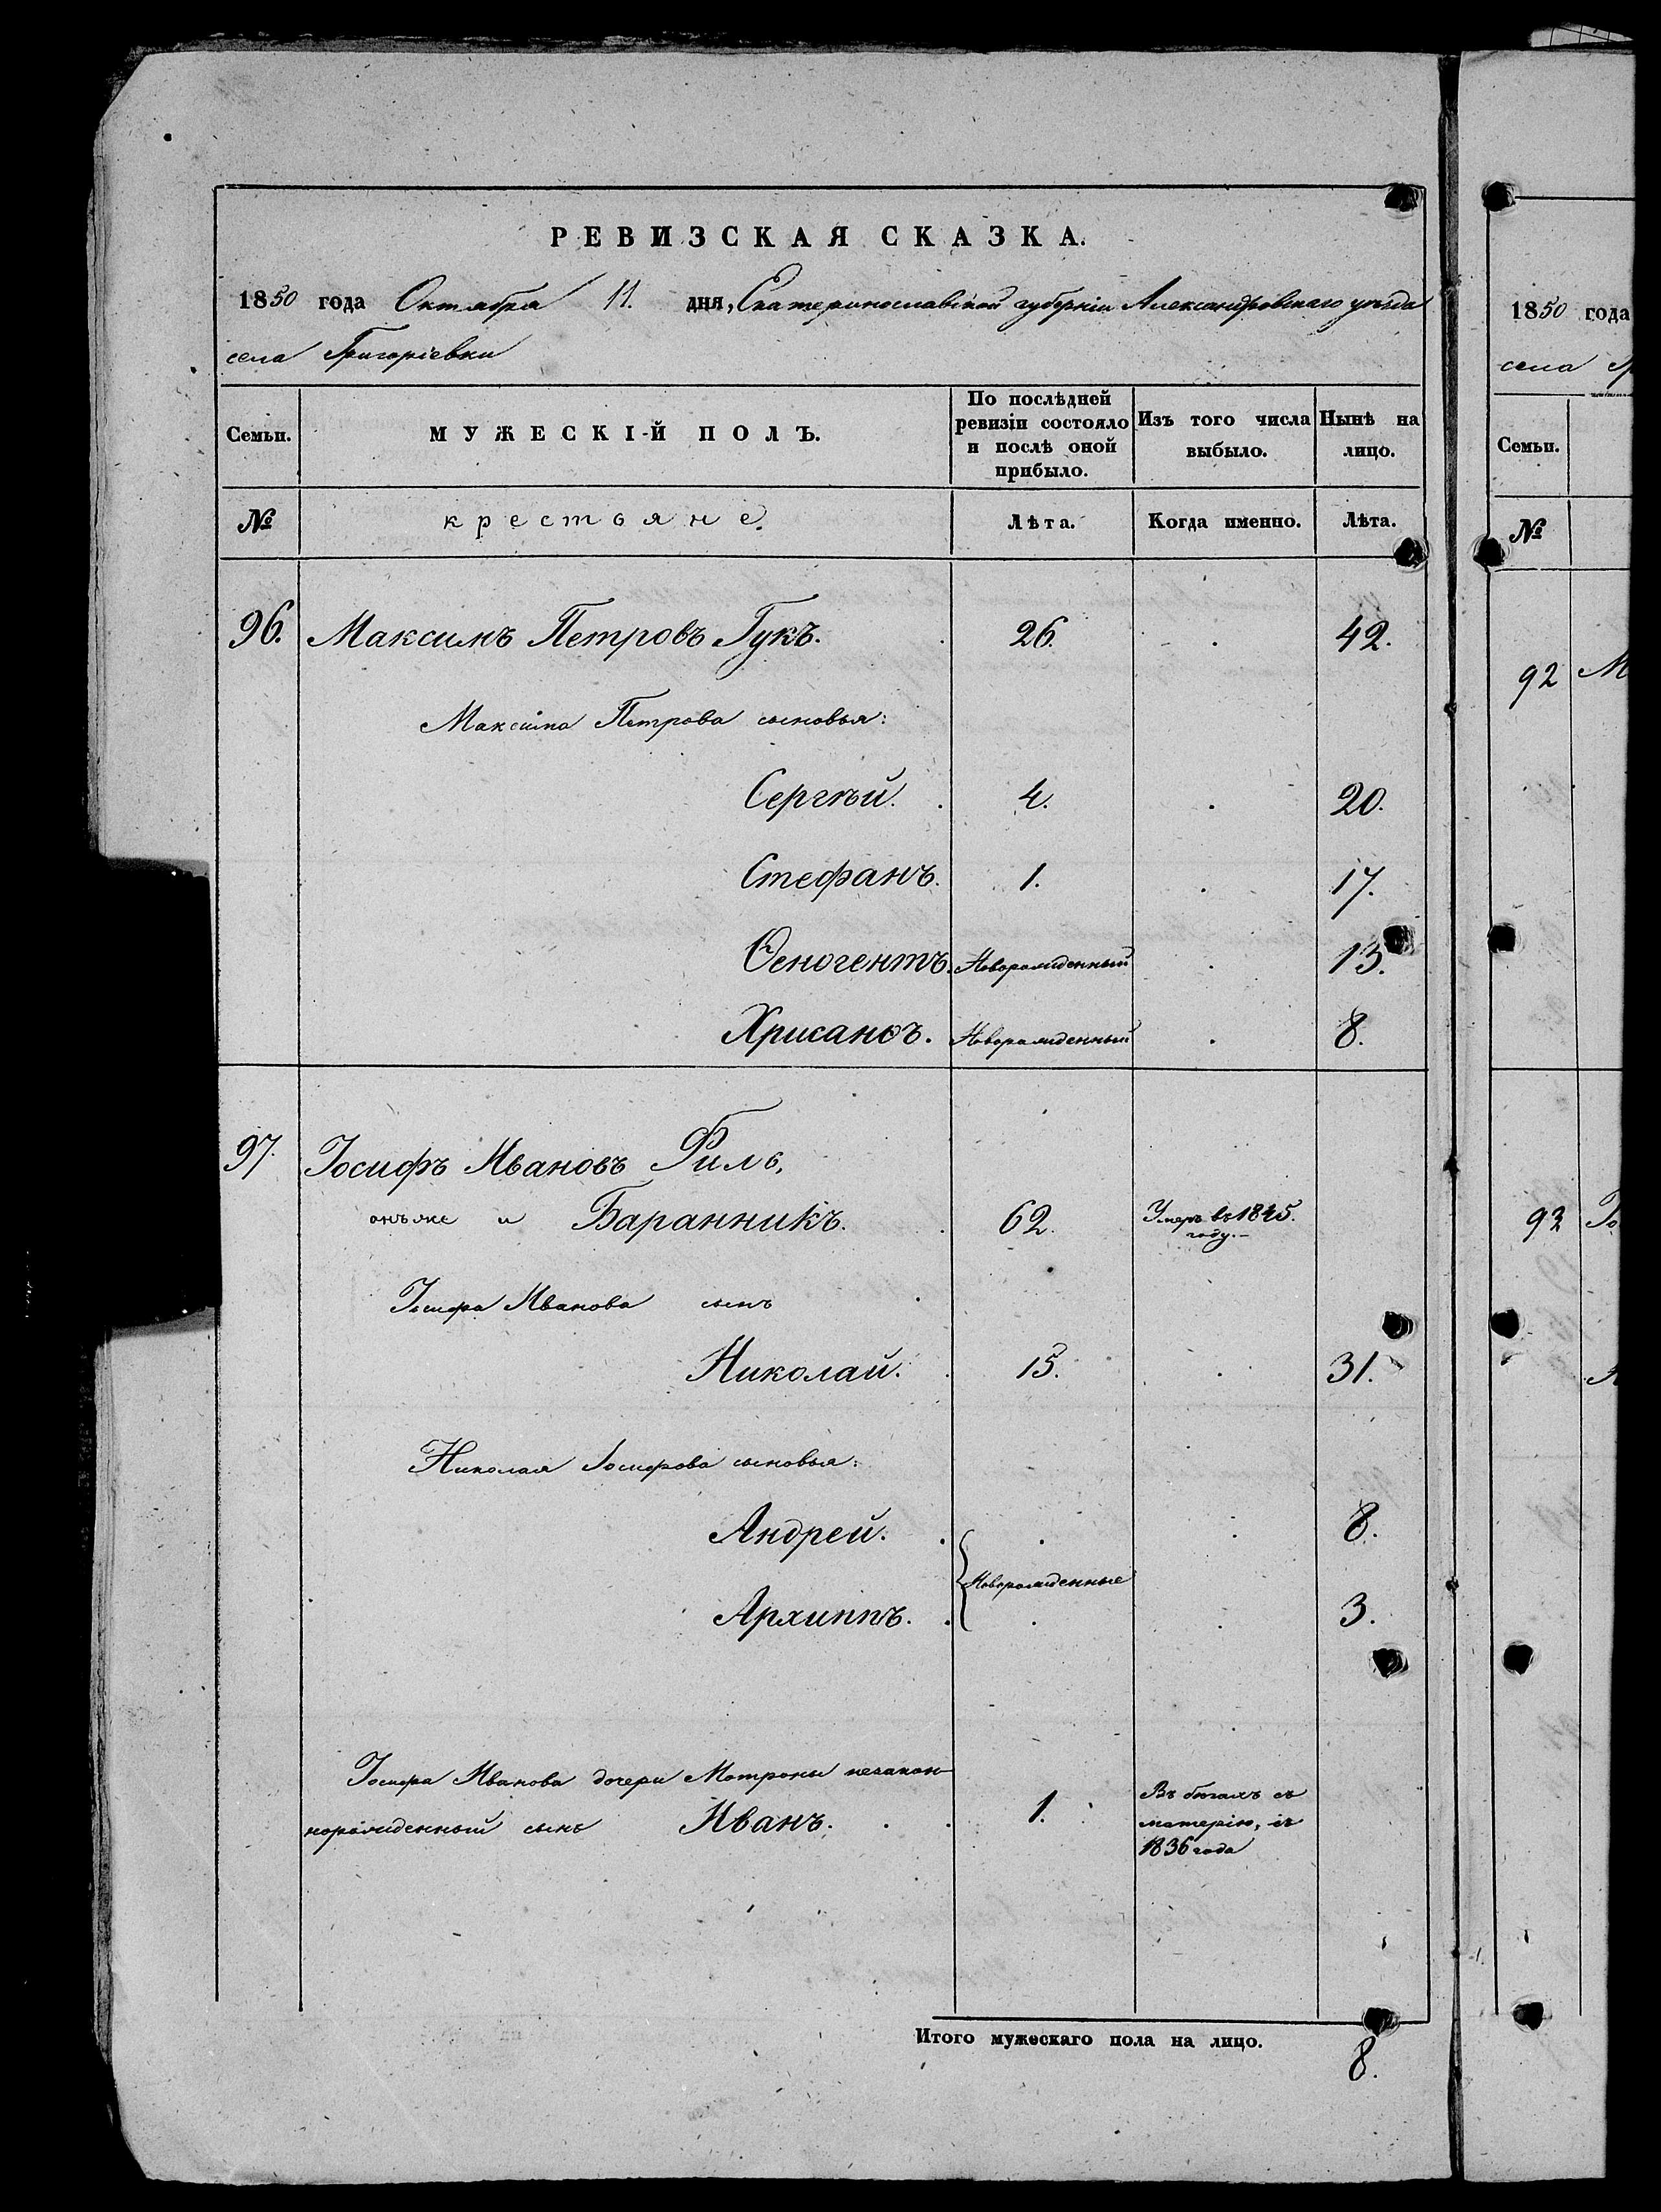 РЕВИЗСКАЯ СКАЗКА.
1850 года Октября 11. дня, Екатеринославской губерніи Александровскаго уѣзда
села Григоріевки
Семьи.
МУЖЕСКІ-Й ПОЛЪ.
По послѣдней
ревизіи состояло
и послѣ оной
прибыло.
Изъ того числа
выбыло.
Нынѣ на
лицо.
№
крестьяне.
Лѣта.
Когда именно.
Лѣта.
96. Максимъ Петровъ Гукъ. 26. 42.
Максима Петрова сыновья:
Сергѣй. 4. 20.
Стефанъ. 1. 17.
Ѳеногентъ. Новорожденный 13.
Хрисанѳъ. Новорожденный 8.
97. Іосифъ Ивановъ Филь,
онъ же и Баранникъ. 62. Умеръ въ 1845.
году.-
Іосифа Иванова сынъ
Николай. 15. 31.
Николая Іосифова сыновья:
Андрей. 8.
Новорожденные
Архиппъ. 3.
Іосифа Иванова дочери Мотроны незакон-
норожденный сынъ Иванъ. 1.
Въ бѣгахъ съ
матерію, съ
1836 года
Итого мужескаго пола на лицо.
8.
1850 года
села
Семьи.
№
92
93